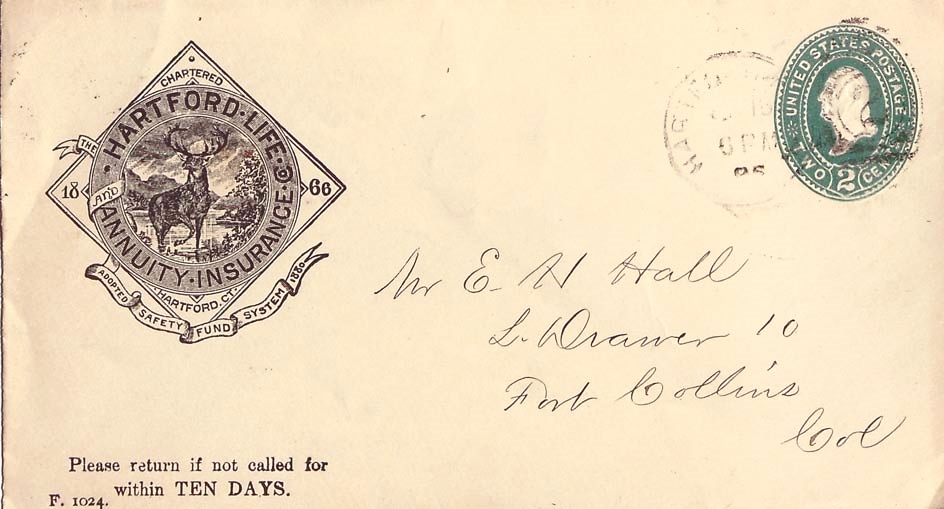 CHARTERED
THE HARTFORD·LIFE·
AND ANNUITY·INSURANCE·Cº
18 66
HARTFORD, CT.
ADOPTED SAFETY FUND SYSTEM 1880
HARTFO
6 PM
UNITED STATES POSTAGE
TWO 2 CENTS
Mr E. H Hall
L. Drawer 10
Fort Collins
Col
Please return if not called for
within TEN DAYS.
F. 1024.